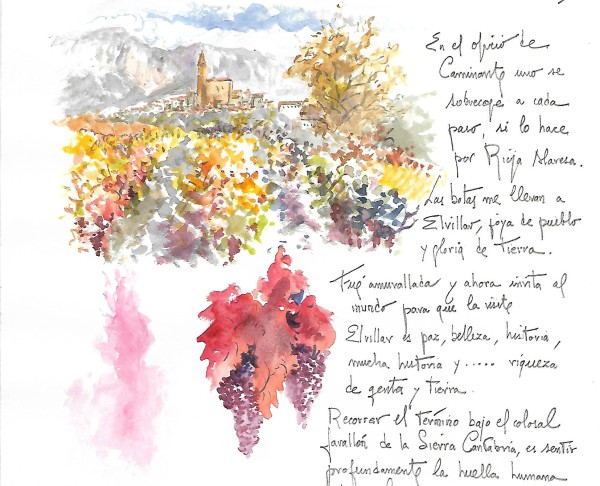 En el oficio de
Caminante uno se
sobrecoge a cada
paso, si lo hace
por Rioja Alavesa.
Las botas me llevan a
Elvillar, joya de pueblo
y gloria de Tierra.
Fue amurallada y ahora invita al
mundo para que la visite
Elvillar es paz, belleza, historia,
mucha historia y ..... riqueza
de gente y tierra.
Recorrer el término bajo el colosal
farallón de la Sierra Cantabria, es sentir
profundamente la huella humana